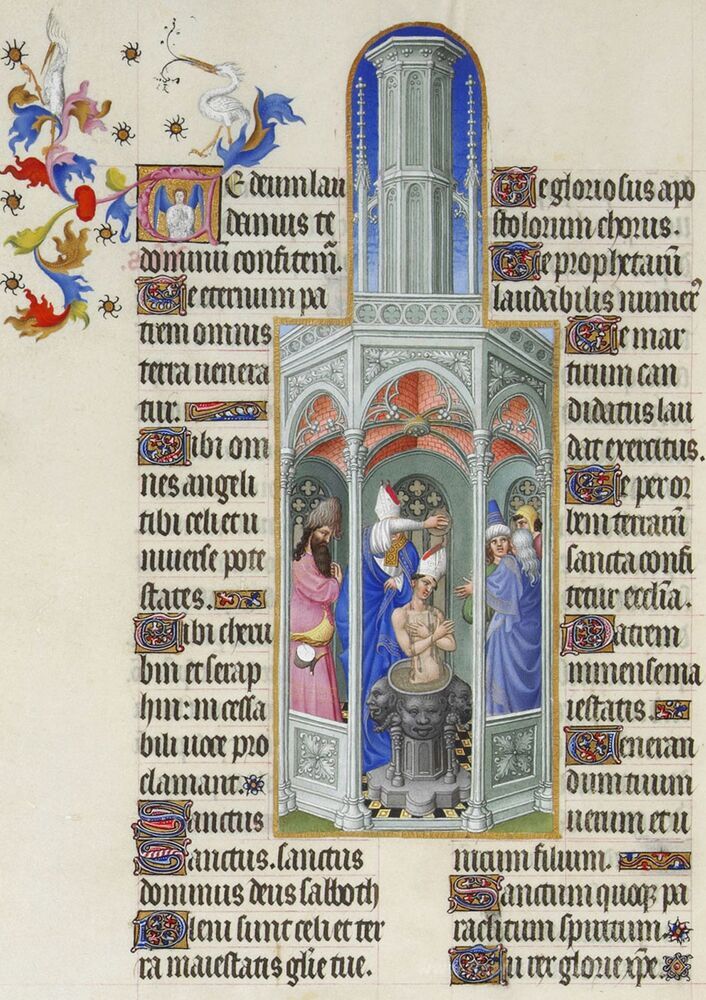 Te deum lau
damus te
dominū confitem̄.
Te eternum pa
trem omnis
terra uenera
tur.
Tibi om
nes angeli
tibi celi et u
niuerse pote
states.
Tibi cheru
bin et serap
hin: incessa
bili uoce pro
clamant.
Sanctus
Sanctus. sanctus
dominus deus sabboth
Pleni sunt celi et ter
ra maiestatis gl̄ie tue.
Te gloriosus apo
stolorum chorus.
Te prophetarū
laudabilis numer᷒
Te mar
tirum can
didatus lau
dat exercitus.
Te per or
bem terrarū
sancta confi
tetur eccl̄ia.
Patrem
inmense ma
iestatis.
Ueneran
dum tuum
uerum et u
nicum filium.
Sanctum quoqꝫ pa
raclitum spiritum.
Tu rex glorie xp̄e.